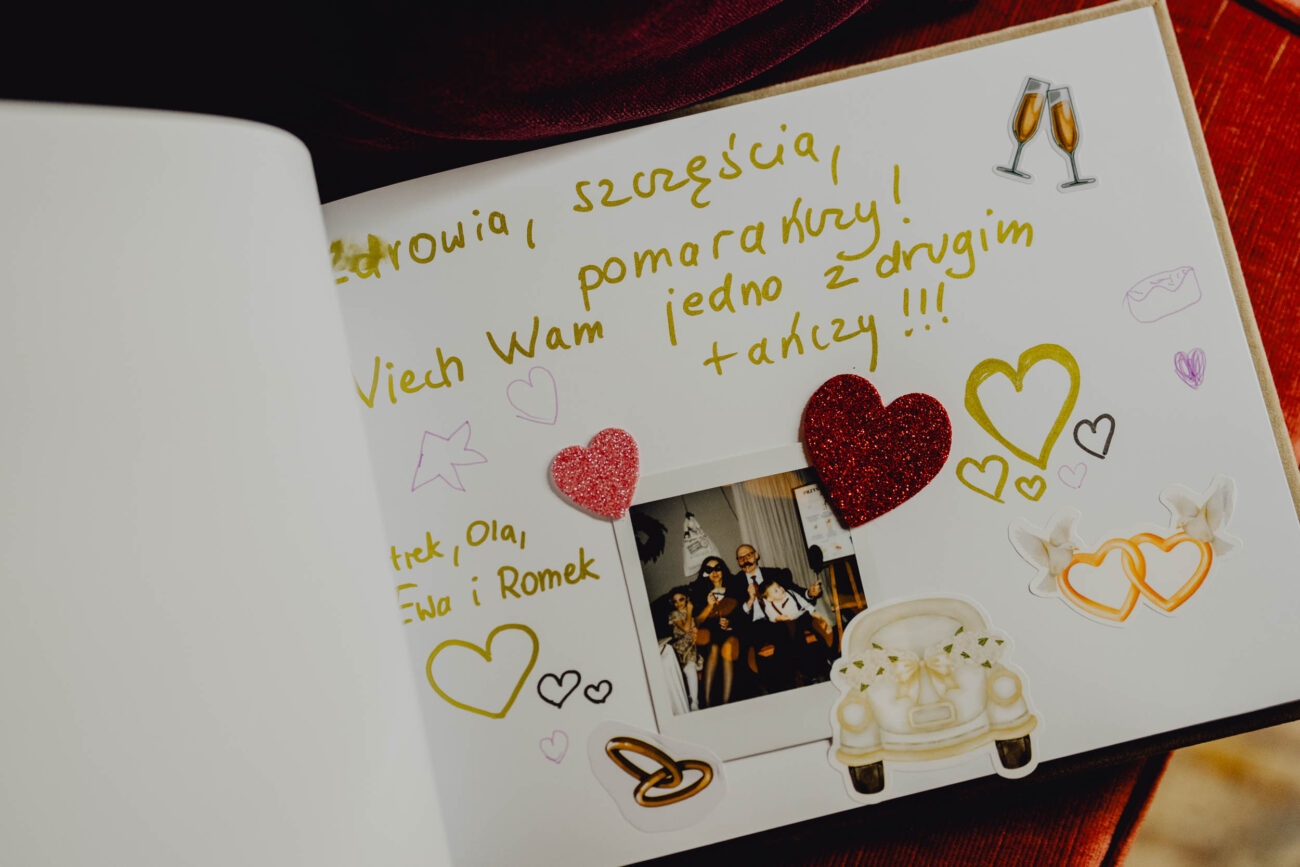 Zdrowia, szczęścia,
pomarańczy!
Niech Wam jedno z drugim
tańczy!!!
trek, Ola,
Ewa i Romek